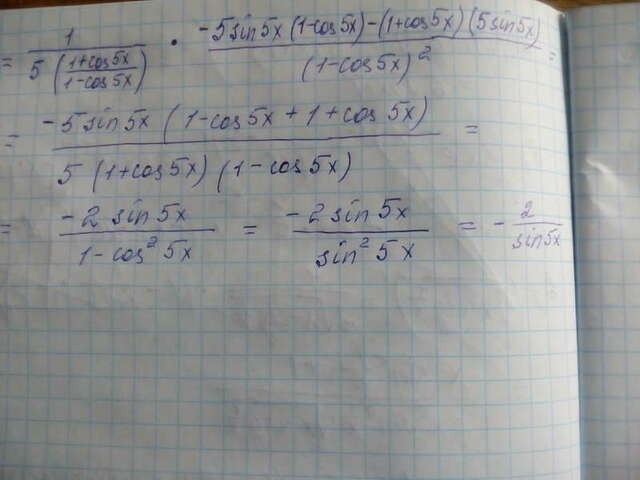 = 1/(5((1+cos5x)/(1-cos5x))) · (-5sin5x(1-cos5x)-(1+cos5x)(5sin5x))/(1-cos5x)² =
= (-5sin5x(1-cos5x+1+cos5x))/(5(1+cos5x)(1-cos5x)) =
= (-2sin5x)/(1-cos²5x) = (-2sin5x)/(sin²5x) = -2/(sin5x)